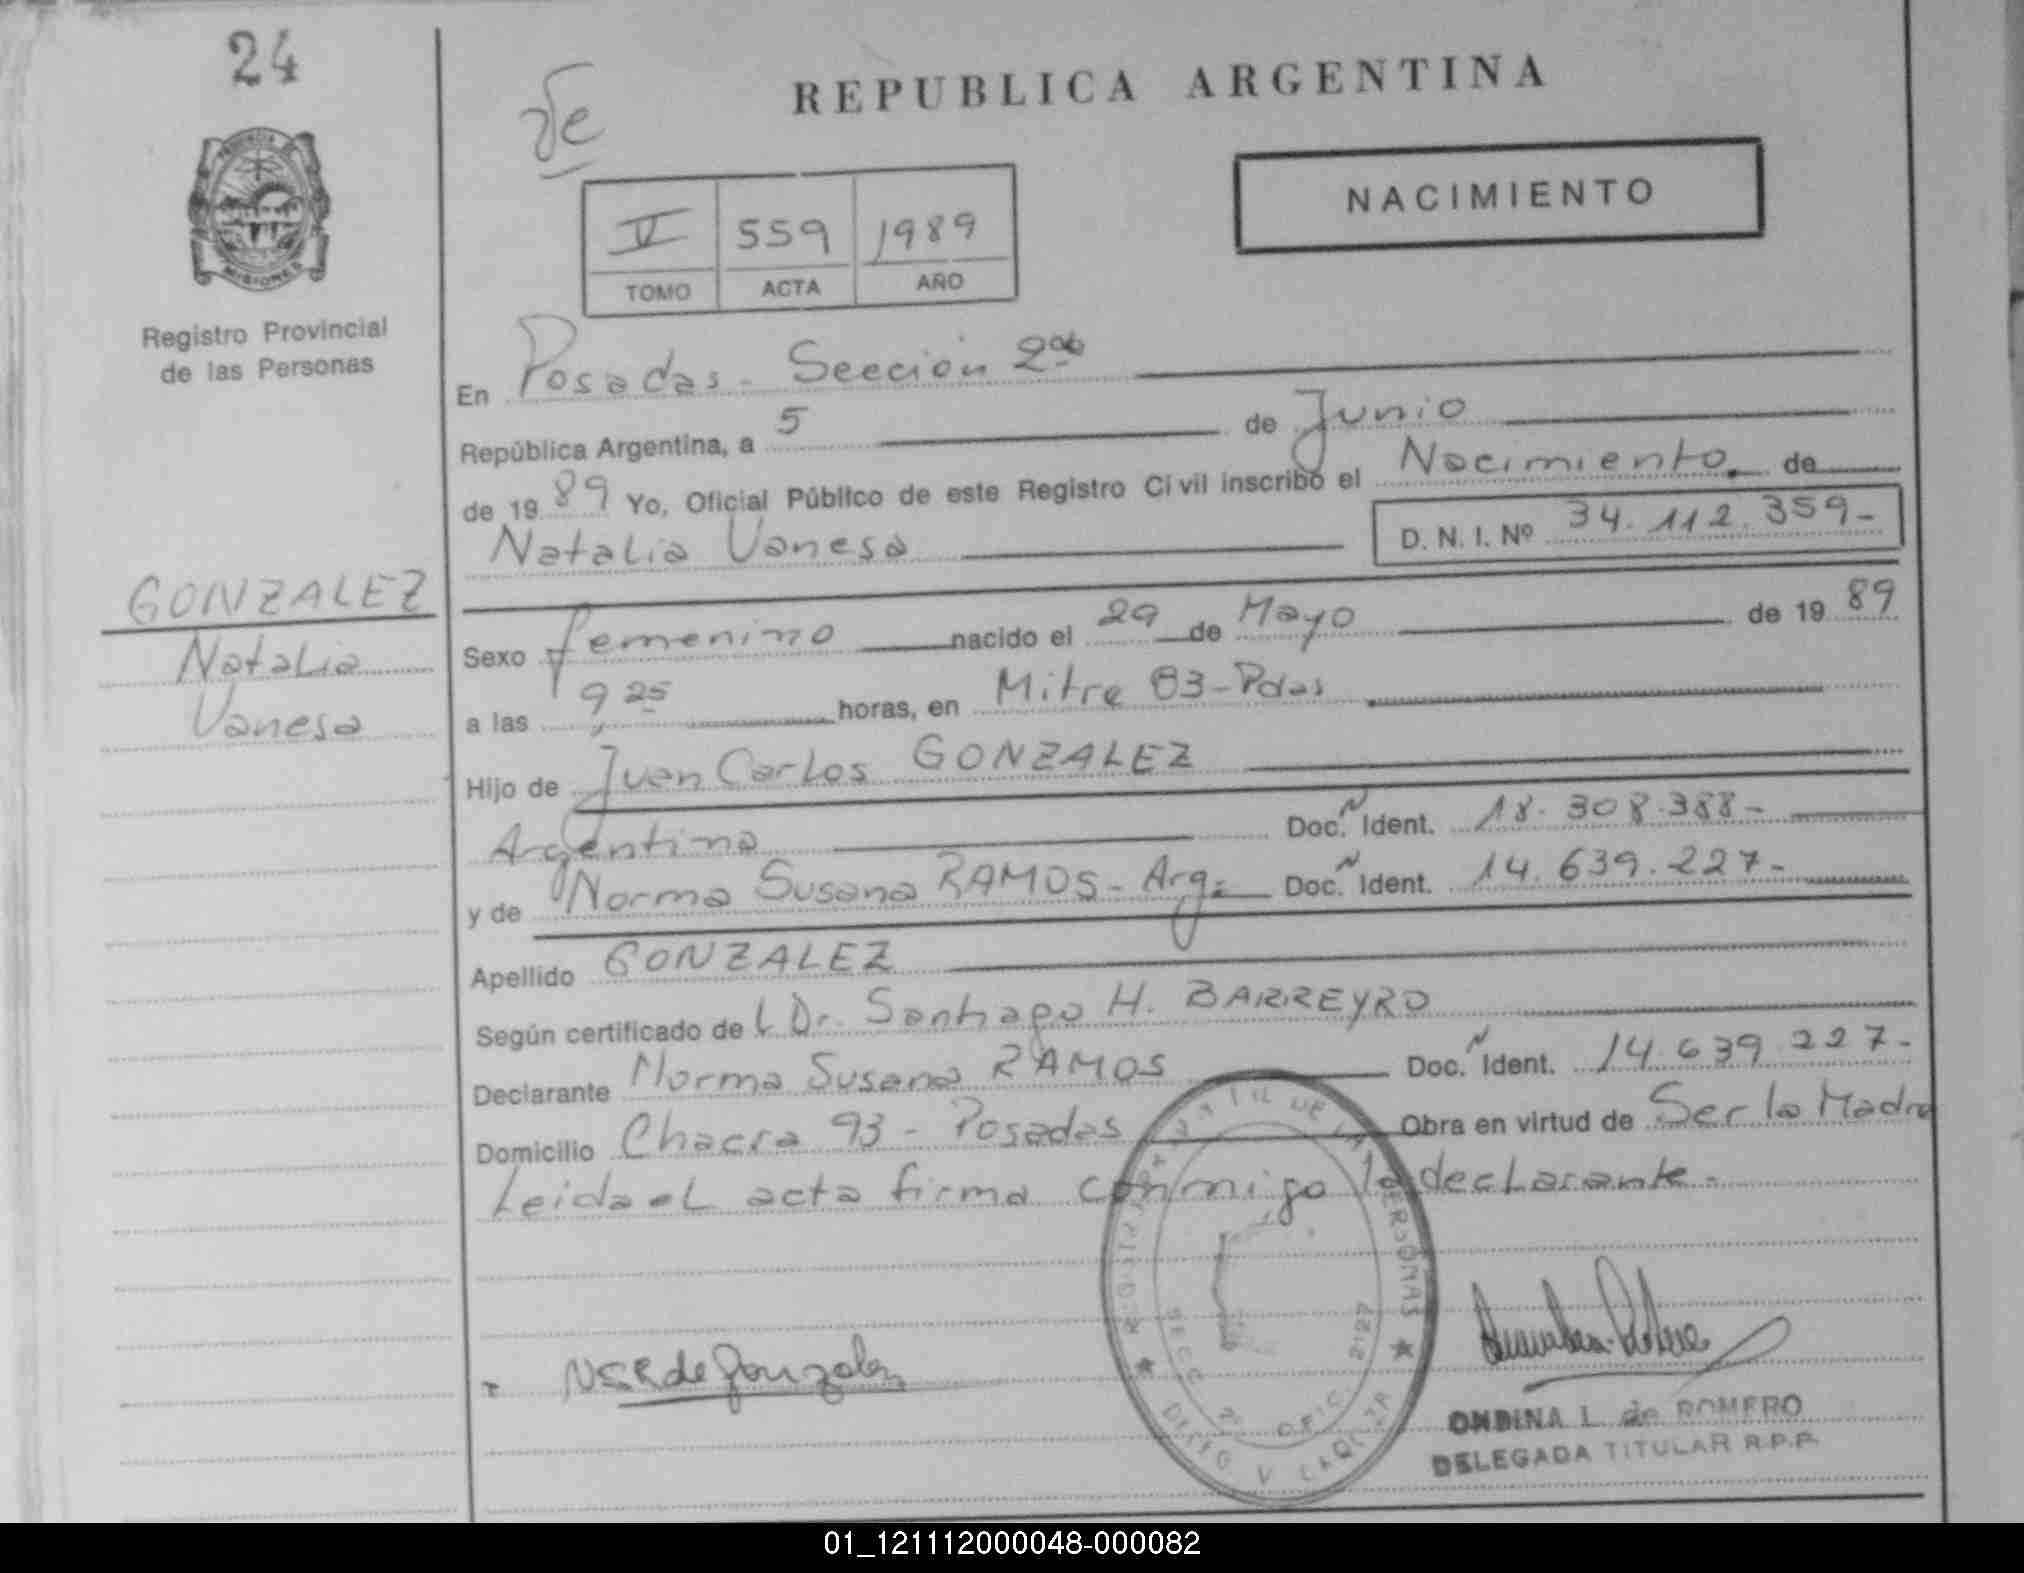 24
REPUBLICA ARGENTINA
NACIMIENTO
V 559 1989
TOMO ACTA AÑO
PROVINCIA
MISIONES
Registro Provincial
de las Personas
En Posadas - Sección 2da
República Argentina, a 5 de Junio
de 1989 Yo, Oficial Público de este Registro Civil inscribo el Nacimiento de
Natalia Vanesa D. N. I. Nº 34.112.359-
GONZALEZ
Natalia
Vanesa
Sexo femenino nacido el 29 de Mayo de 1989
a las 9,25 horas, en Mitre 83-Pdas
Hijo de Juan Carlos GONZALEZ
Argentino Doc. Ident. 18.308.388-
y de Norma Susana RAMOS - Arg. Doc. Ident. 14.639.227-
Apellido GONZALEZ
Según certificado del Dr. Santiago H. BARREYRO
Declarante Norma Susana RAMOS Doc. Ident. 14.639.227-
Domicilio Chacra 93 - Posadas Obra en virtud de Ser la Madre
Leida el acta firma conmigo la declarante.
NSR de Gonzalez
ONDINA L. de ROMERO
DELEGADA TITULAR R.P.P.
01_121112000048-000082